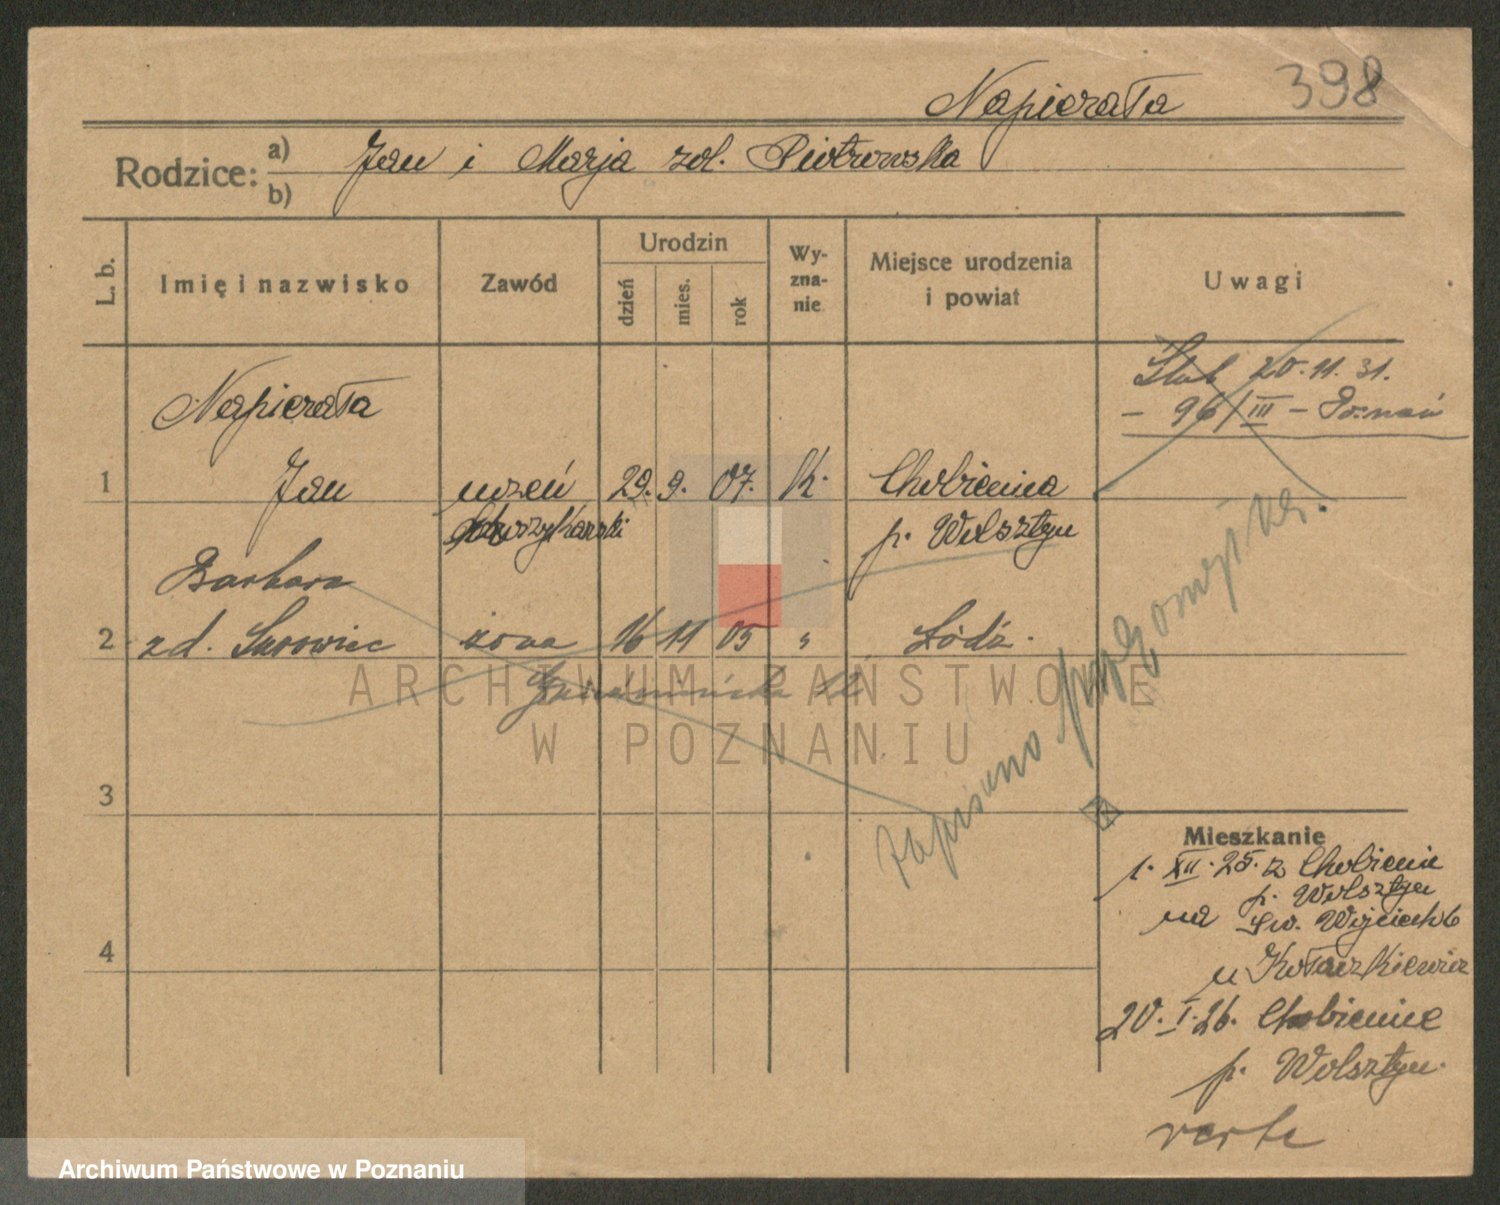 398
Napierała
Rodzice: a) Jan i Marja zd. Piotrowska
b)
L. b.
Imię i nazwisko
Zawód
Urodzin
dzień
mies.
rok
Wy-
zna-
nie
Miejsce urodzenia
i powiat
Uwagi
Ślub 20.11.31.
- 96/III - Poznań
Napierała
1 Jan uczeń 29. 9. 07. K. Chobienice
p. Wolsztyn
Barbara
2 zd. Surowiec żona 16 11 05 " Łódź.
3
4
zapisano
Mieszkanie
1. XII. 25. z Chobienic
p. Wolsztyn
na Św. Wojciech 6
u
20. I. 26. Chobienice
p. Wolsztyn.
verte
ARCHIWUM PAŃSTWOWE
W POZNANIU
Archiwum Państwowe w Poznaniu